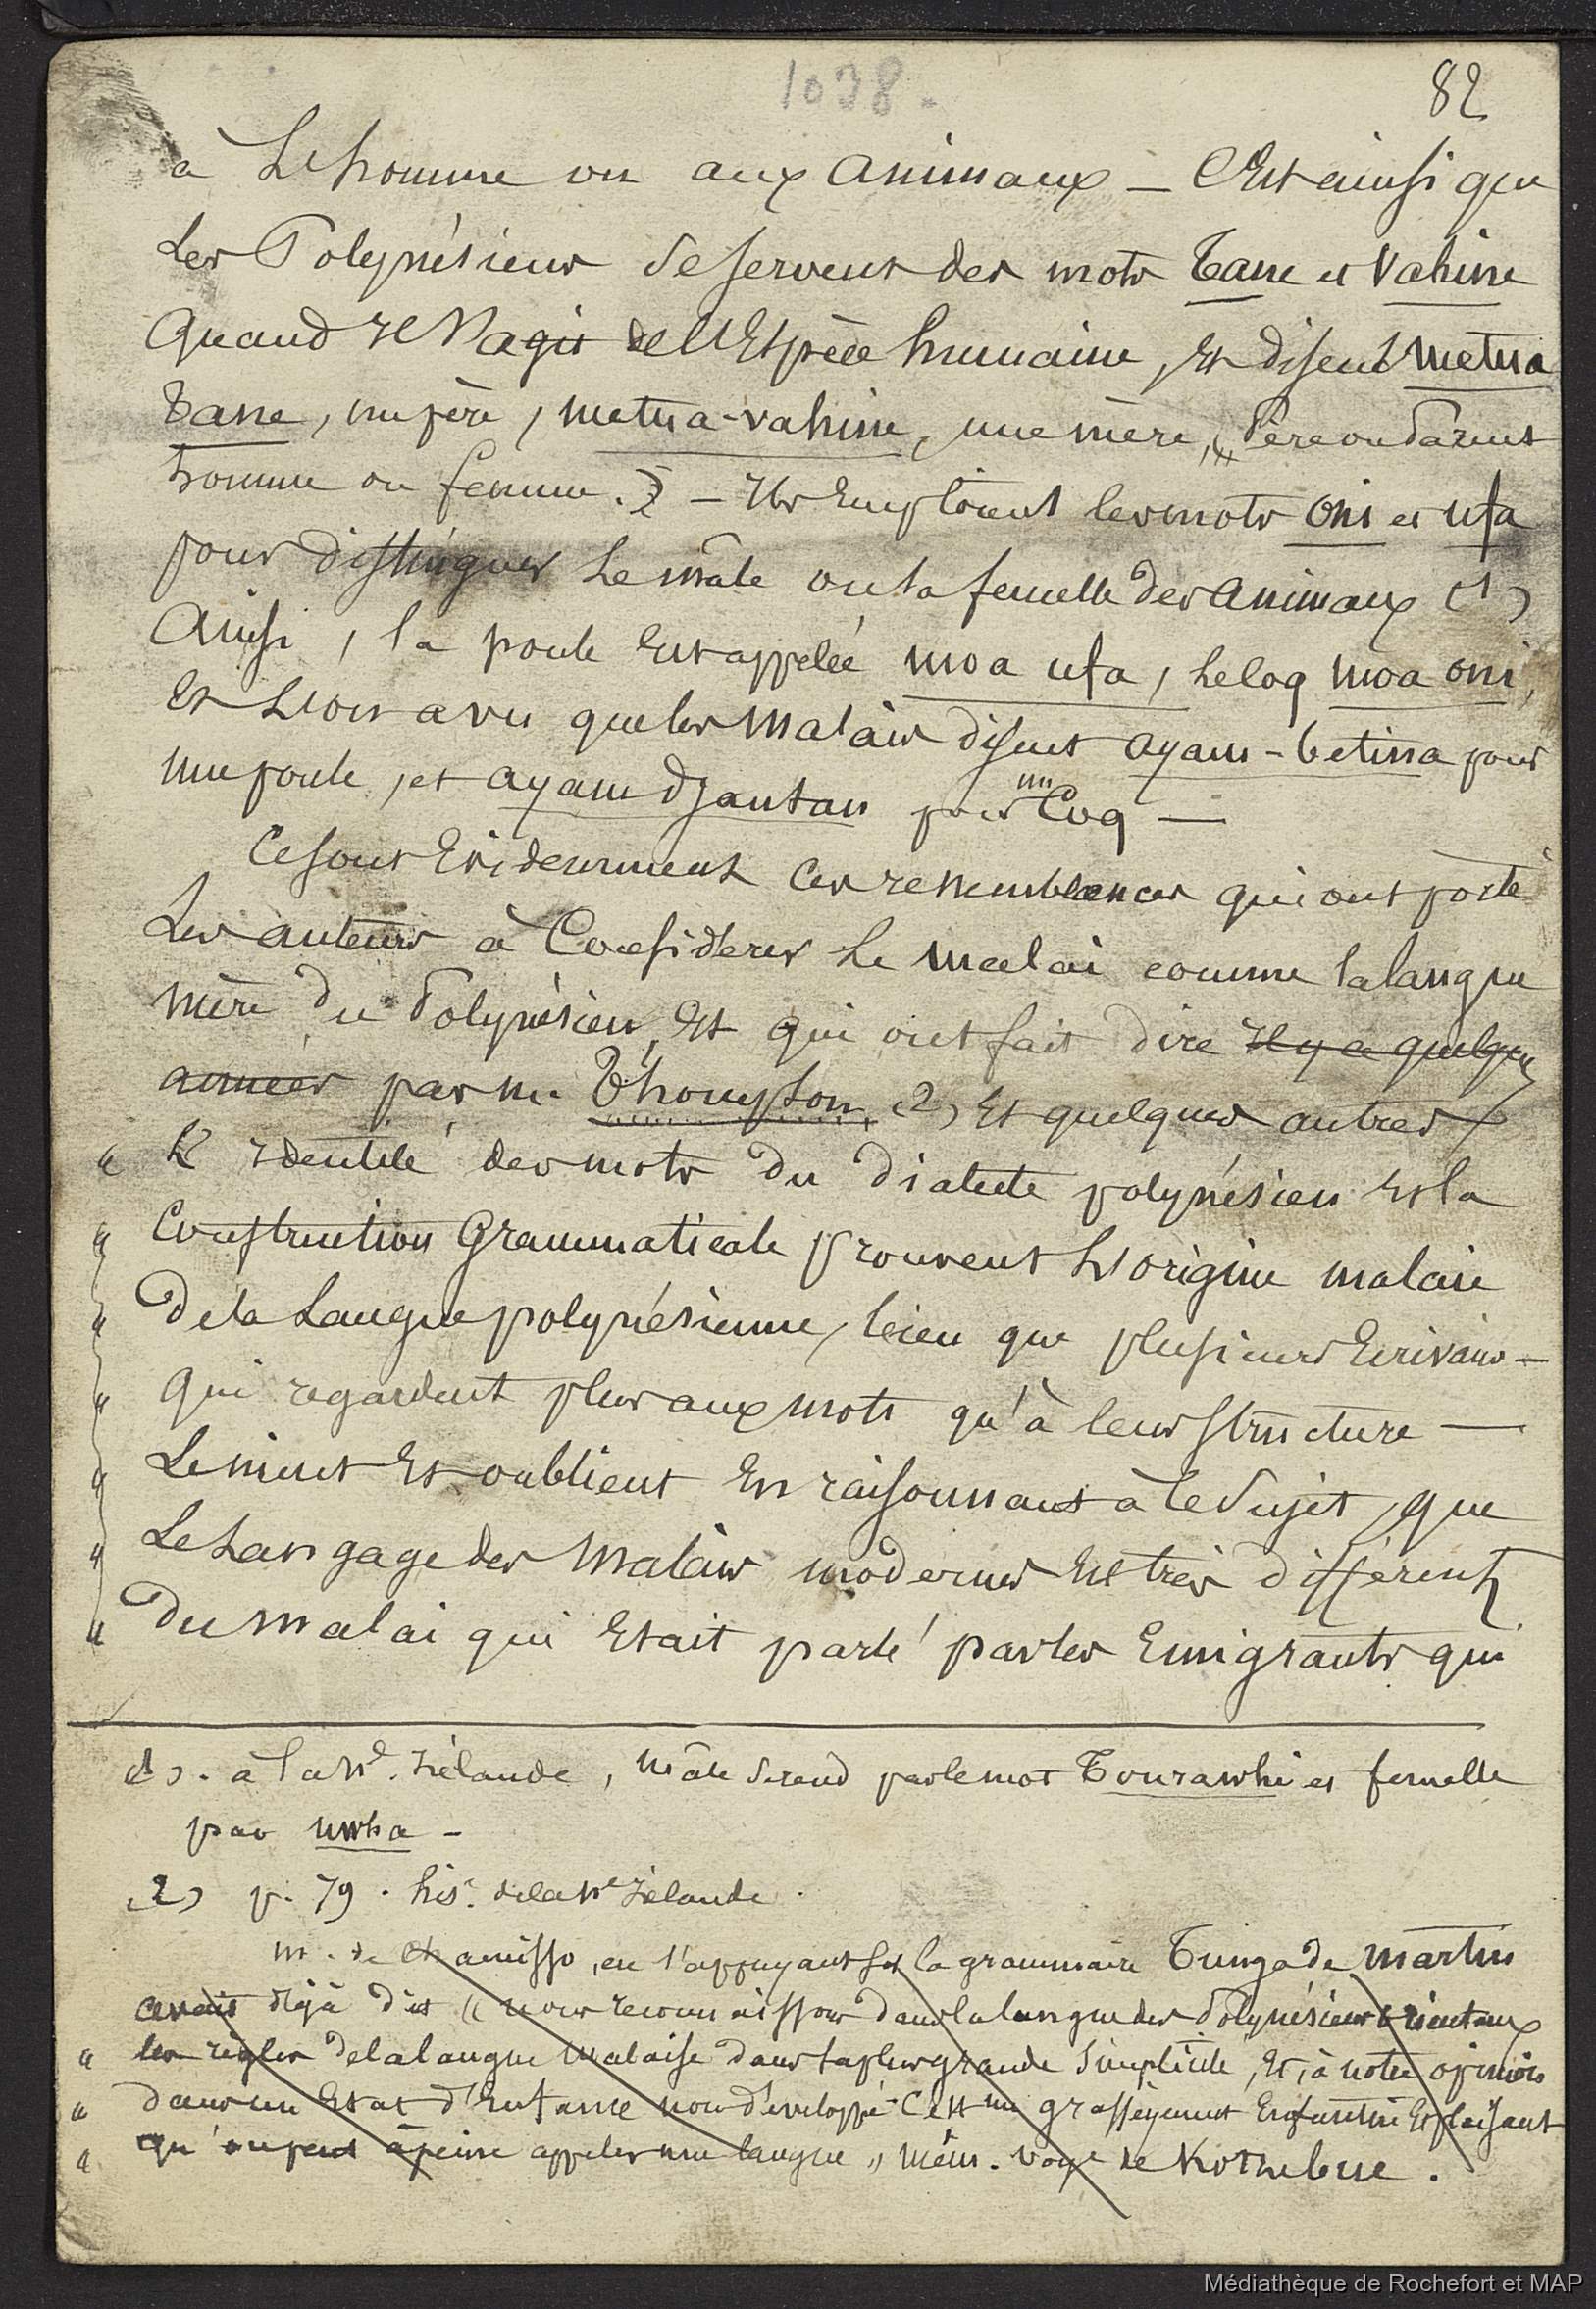 1038.
82
à L'homme ou aux animaux — C'Est ainsi que
Les Polynésiens se servent des mots Tane et Vahine
Quand Il s'agit de l'Espèce humaine, Et disent metua
Tane, un père, metua-vahine, une mère, Père ou Parent
homme ou femme. — Ils Emploient les mots Oni et ufa
pour distinguer Le mâle ou la femelle des animaux (1)
Ainsi, la poule Est appelée moa ufa, Le Coq moa oni,
Et L'on a vu que les malais disent ayam-betina pour
une poule, et ayam djantan pour un Coq —
Ce sont Evidemment ces ressemblances qui ont porté
Les auteurs à Considérer Le malai comme la langue
mère du Polynésien, Et qui ont fait dire Il y a quelques
années par M. Thompson, (2) Et quelques autres
" L'Identité des mots du dialecte polynésien et la
" Construction Grammaticale prouvent L'origine malaise
" De la Langue polynésienne, bien que plusieurs Ecrivains —
" qui regardent plus aux mots qu'à leur structure —
" Le nient Et oublient En raisonnant à ce Sujet, que
" Le Langage des Malais modernes Est très différent
" Du malai qui Etait parlé par les Emigrants qui
(1). à la Nle. Zélande, mâle se rend par le mot Tourawhi et femelle
par uwha —
(2) p. 79. his. de la Nle Zélande.
M. de Chamisso, en s'appuyant sur la grammaire Tunga de Martin
avait déjà dit " nous reconnaissons dans la langue des Polynésiens orientaux
" les règles de la langue Malaise dans sa plus grande Simplicité, Et, à notre opinion
" dans un Etat d'Enfance non développé. C'est un grasseyement Enfantin Et plaisant
" qu'on peut à peine appeler une langue " mêm. Voye de Kotzebue.
Médiathèque de Rochefort et MAP